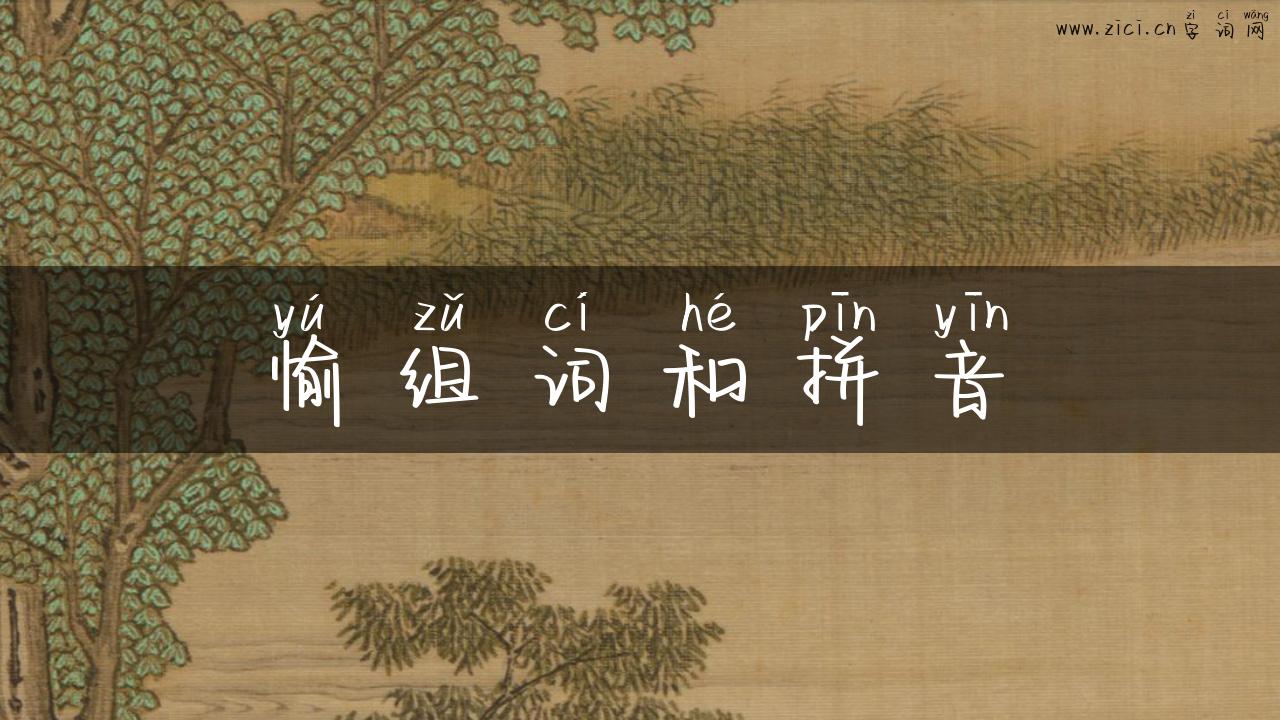 zì cí wǎng
www.zici.cn字词网
yú zǔ cí hé pīn yīn
愉组词和拼音